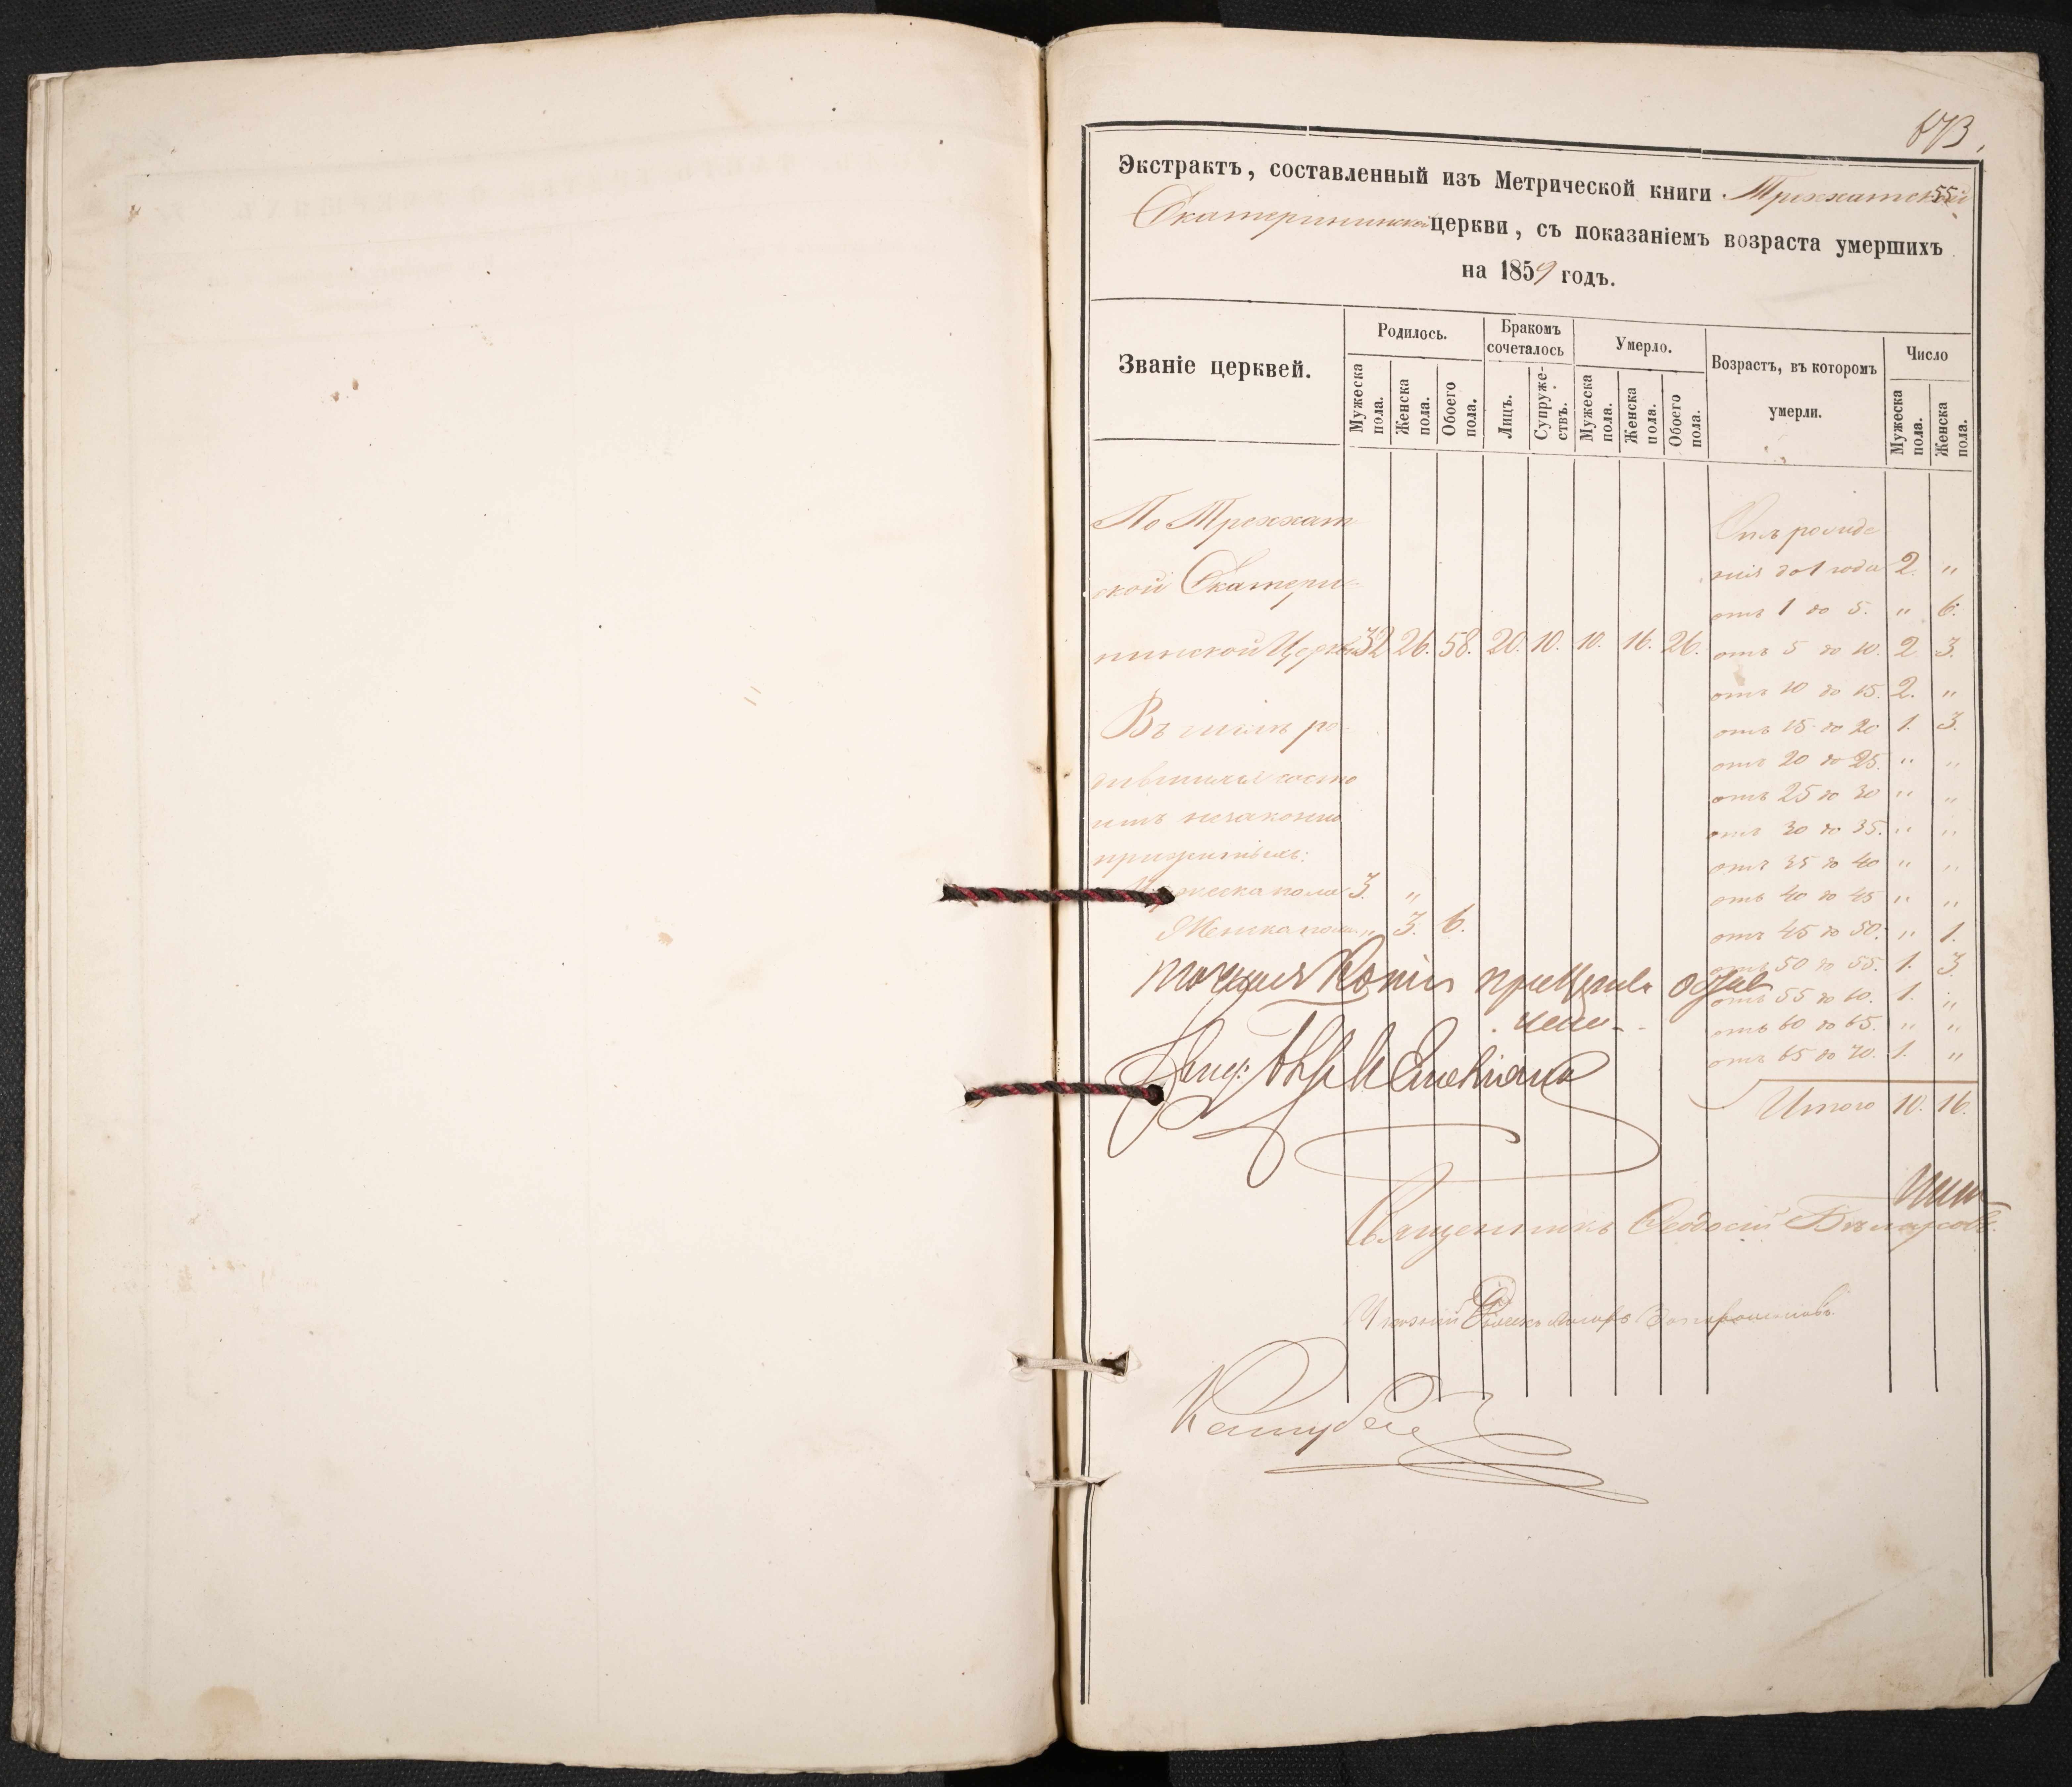 673.
55
Экстрактъ, составленный изъ Метрической книги Треххатской
Екатерининской церкви, съ показаніемъ возраста умершихъ
на 1859 годъ.
Званіе церквей.
Родилось.
Бракомъ сочеталось
Умерло.
Возрастъ, въ которомъ умерли.
Число
Мужеска пола.
Женска пола.
Обоего пола.
Лицъ.
Супружествъ.
Мужеска пола.
Женска пола.
Обоего пола.
Мужеска пола.
Женска пола.
По Треххат
ской Екатери
нинской Церкви 32 26. 58. 20. 10. 10. 16. 26.
Въ числѣ ро
дившихся состо
итъ незаконно
прижитыхъ:
Мужеска пола 3. "
Женска пола " 3. 6.
Отъ рожде
нія до 1 года 2. "
отъ 1 до 5. " 6.
отъ 5 до 10. 2 3.
отъ 10 до 15. 2. "
отъ 15 до 20 1. 3.
отъ 20 до 25. " "
отъ 25 до 30 " "
отъ 30 до 35. " "
отъ 35 до 40 " "
отъ 40 до 45 " "
отъ 45 до 50. " 1.
отъ 50 до 55. 1. 3.
отъ 55 до 60. 1. "
отъ 60 до 65. " "
отъ 65 до 70. 1. "
Итого 10. 16.
Священникъ Ѳеодосій